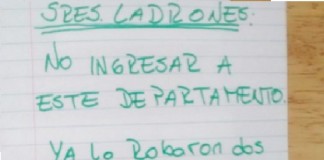 SRES. LADRONES:
NO INGRESAR A
ESTE DEPARTAMENTO.
YA LO ROBARON DOS